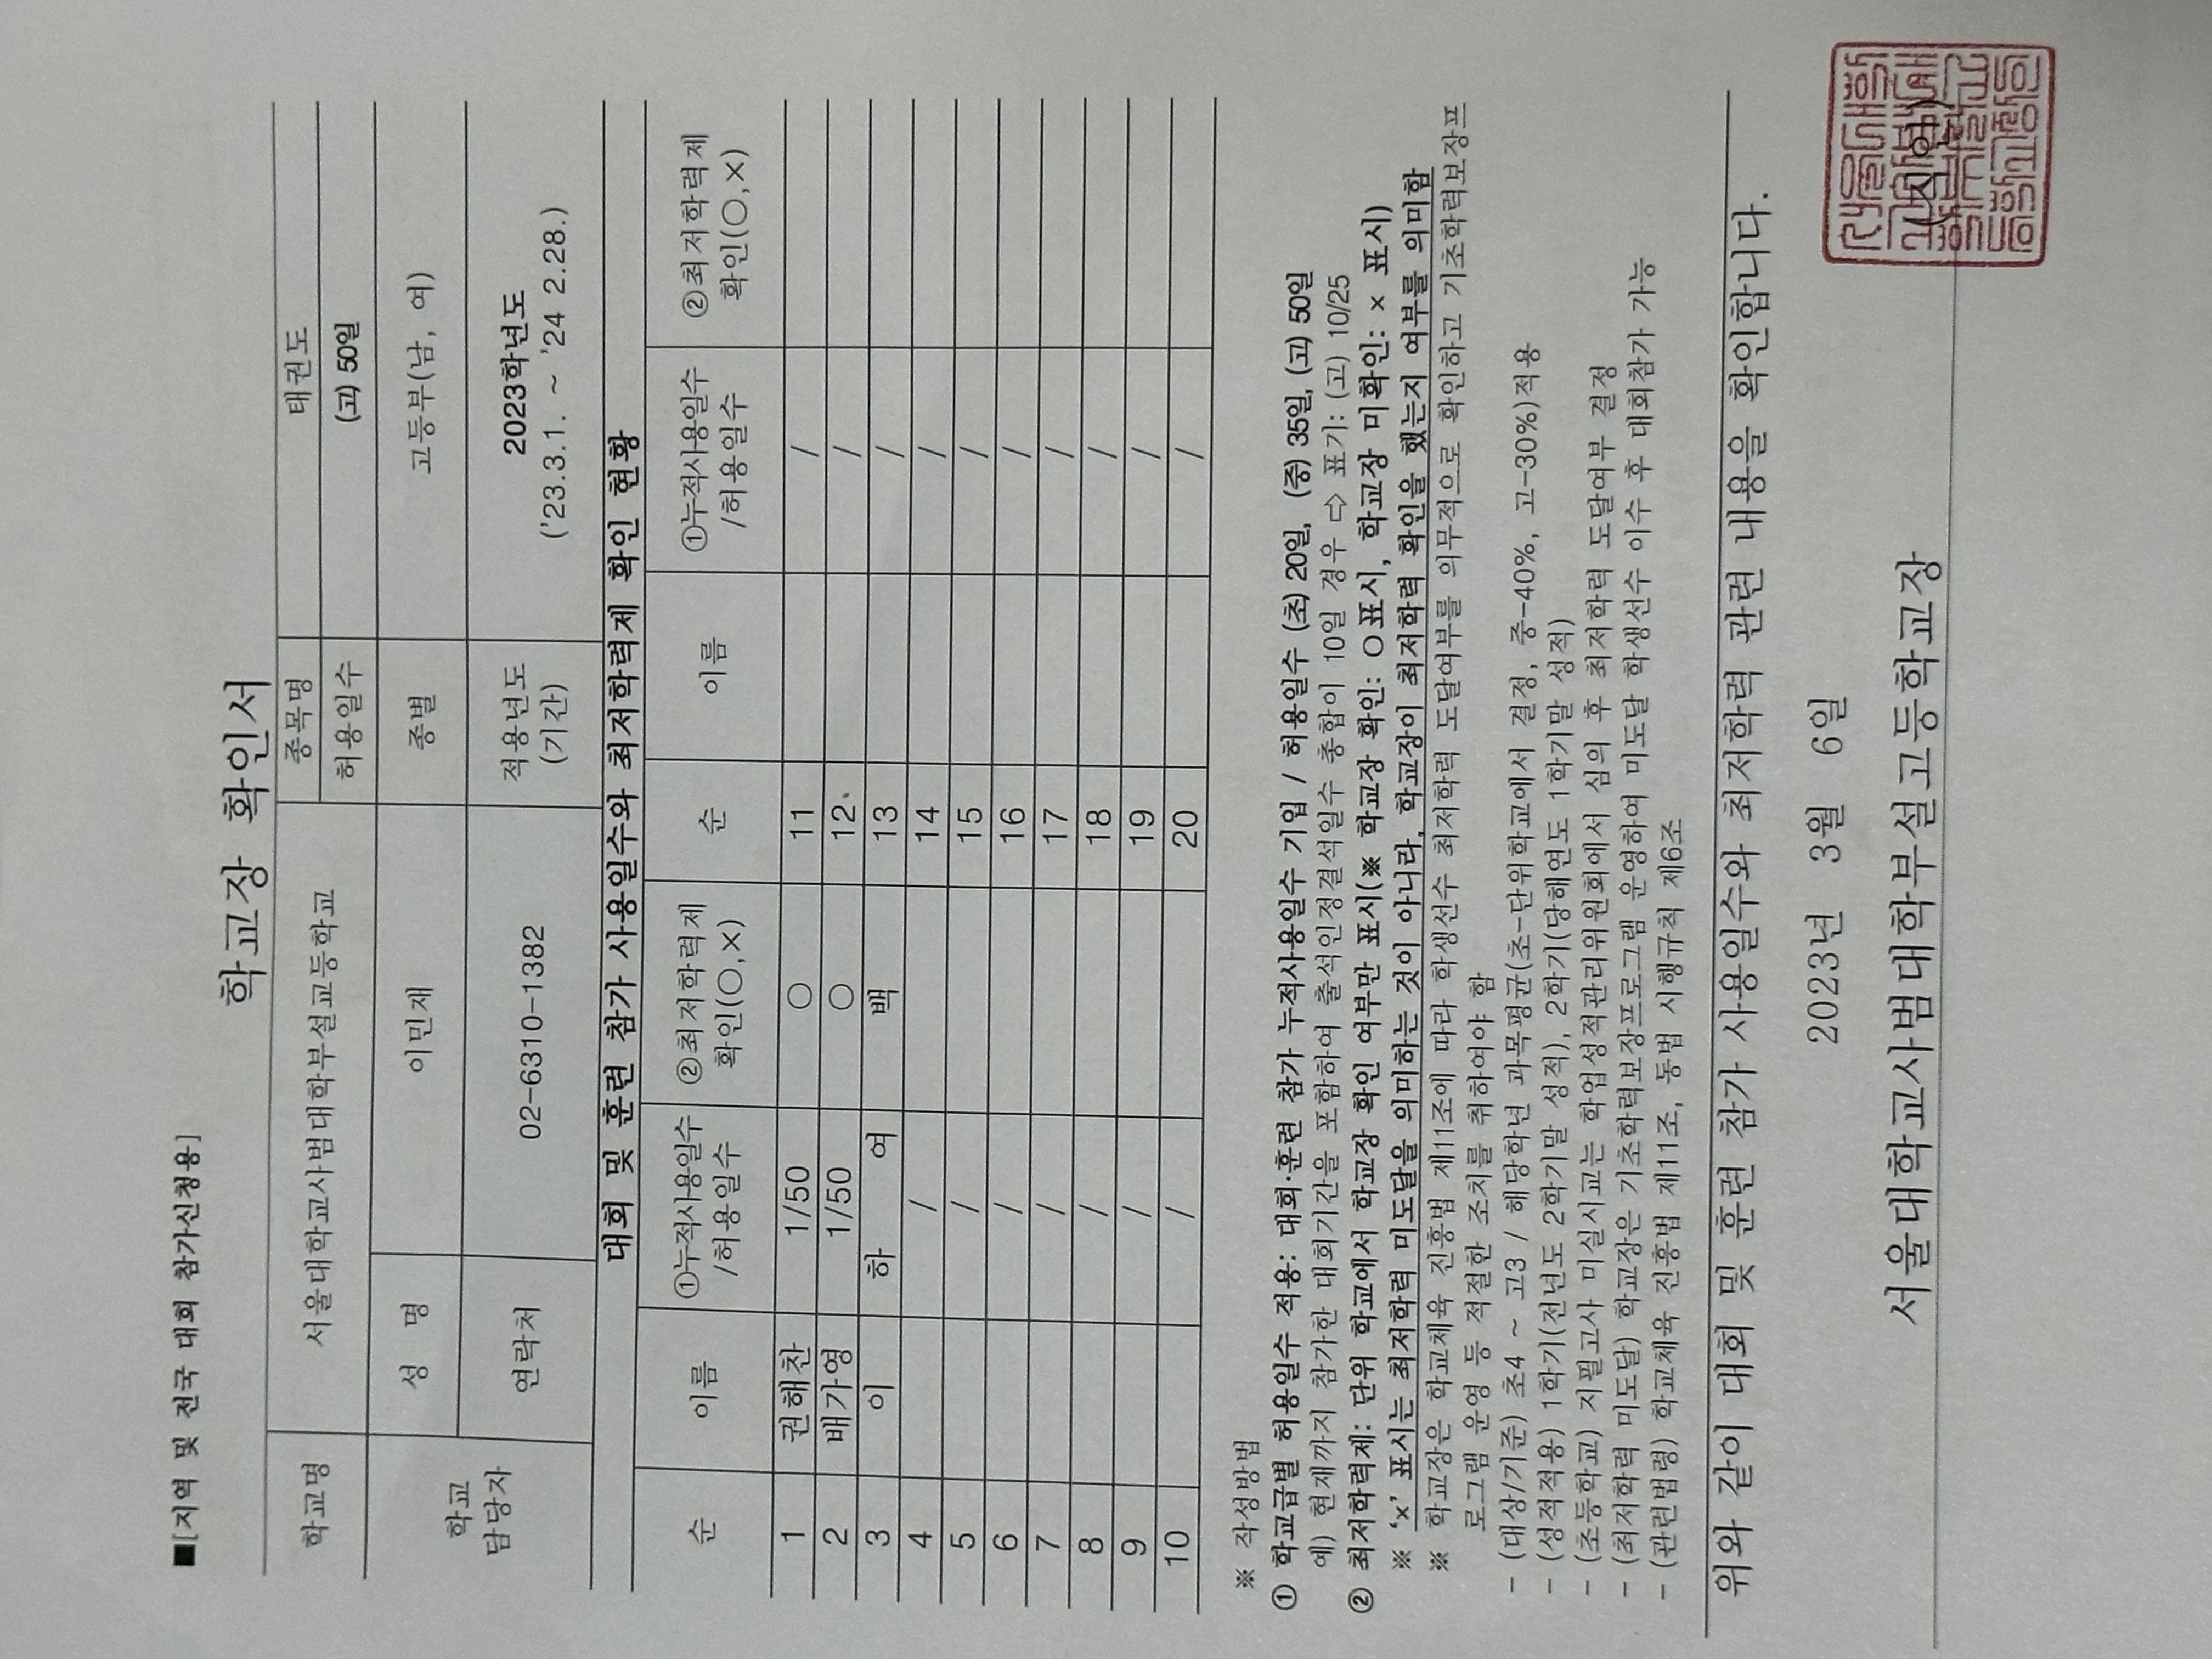 ■[지역 및 전국 대회 참가신청용]
학교장 확인서
학교명 서울대학교사범대학부설고등학교 종목명 태권도
허용일수 (고) 50일
학교 담당자 성 명 이민재 종별 고등부(남, 여)
연락처 02-6310-1382 적용년도 (기간) 2023학년도 ('23.3.1. ~ '24 2.28.)
대회 및 훈련 참가 사용일수와 최저학력제 확인 현황
순 이름 ①누적사용일수 /허용일수 ②최저학력제 확인(○,×) 순 이름 ①누적사용일수 /허용일수 ②최저학력제 확인(○,×)
1 권해찬 1/50 ○ 11 /
2 배가영 1/50 ○ 12 /
3 이 하 여 백 13 /
4 / 14 /
5 / 15 /
6 / 16 /
7 / 17 /
8 / 18 /
9 / 19 /
10 / 20 /
※ 작성방법
① 학교급별 허용일수 적용: 대회·훈련 참가 누적사용일수 기입 / 허용일수 (초) 20일, (중) 35일, (고) 50일
예) 현재까지 참가한 대회기간을 포함하여 출석인정결석일수 총합이 10일 경우 ⇨ 표기: (고) 10/25
② 최저학력제: 단위 학교에서 학교장 확인 여부만 표시(※ 학교장 확인: ○표시, 학교장 미확인: × 표시)
※ ‘×’ 표시는 최저학력 미도달을 의미하는 것이 아니라, 학교장이 최저학력 확인을 했는지 여부를 의미함
※ 학교장은 학교체육 진흥법 제11조에 따라 학생선수 최저학력 도달여부를 의무적으로 확인하고 기초학력보장프
로그램 운영 등 적절한 조치를 취하여야 함
- (대상/기준) 초4 ~ 고3 / 해당학년 과목평균(초-단위학교에서 결정, 중-40%, 고-30%)적용
- (성적적용) 1학기(전년도 2학기말 성적), 2학기(당해연도 1학기말 성적)
- (초등학교) 지필고사 미실시교는 학업성적관리위원회에서 심의 후 최저학력 도달여부 결정
- (최저학력 미도달) 학교장은 기초학력보장프로그램 운영하여 미도달 학생선수 이수 후 대회참가 가능
- (관련법령) 학교체육 진흥법 제11조, 동법 시행규칙 제6조
위와 같이 대회 및 훈련 참가 사용일수와 최저학력 관련 내용을 확인합니다.
2023년 3월 6일
서울대학교사범대학부설고등학교장 (직인)